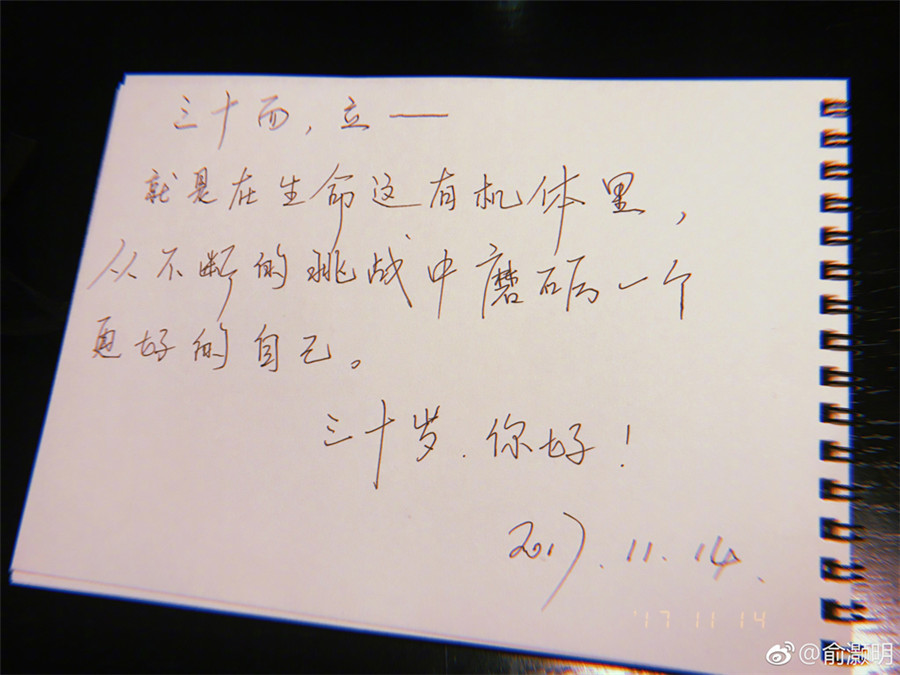 三十而，立——
就是在生命这有机体里，
从不断的挑战中磨砺一个
更好的自己。
三十岁.你好！
2017.11.14.
'17 11 14
@俞灏明